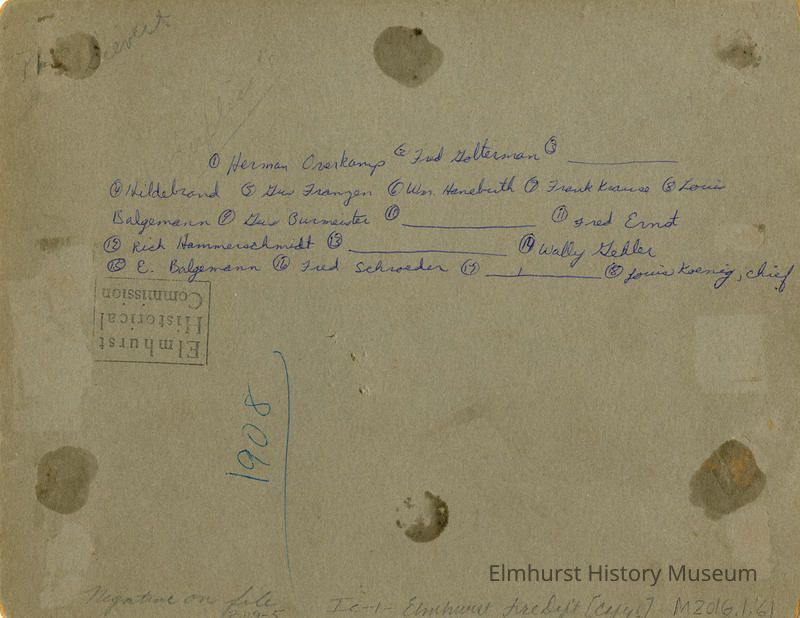 ① Herman Overkamp ② Fred Golterman ③ ________
④ Hildebrand ⑤ Gus Franzen ⑥ Wm. Hanebuth ⑦ Frank Krause ⑧ Louis
Balgemann ⑨ Gus Burmeister ⑩ ________ ⑪ Fred Ernst
⑫ Rich Hammerschmidt ⑬ ________ ⑭ Wally Gehler
⑮ E. Balgemann ⑯ Fred Schroeder ⑰ ________ ⑱ Louis Koenig, chief
Elmhurst
Historical
Commission
1908
Elmhurst History Museum
Negative on file
Ic-1- Elmhurst Fire Dept [copy] M2016.1.61